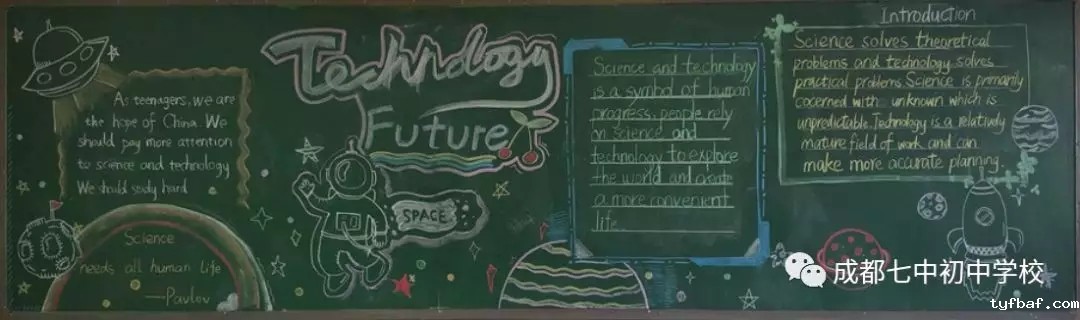 As teenagers, we are
the hope of China. We
should pay more attention
to science and technology
We should study hard
Science
needs all human life
—Pavlov
Technology
Future
SPACE
Science and technology
is a symbol of human
progress. people rely
on science and
technology to explore
the world and create
a more convenient
life.
Introduction
Science solves theoretical
problems and technology solves
practical problems Science is primarily
cocerned with unknown which is
unpredictable. Technology is a relatively
mature field of work and can
make more accurate planning.
成都七中初中学校
tyfbaf.com